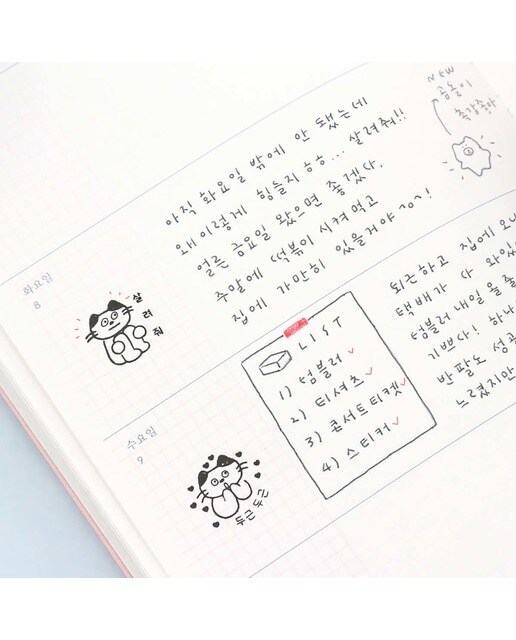 NEW
곰돌이
촉감좋아
아직 화요일 밖에 안 됐는데
왜 이렇게 힘들지 ㅎㅎ... 살려줘!!
얼른 금요일 왔으면 좋겠다.
주말에 떡볶이 시켜먹고
집에 가만히 있을거야 ~!
화요일
8
살려줘
퇴근하고 집에 오니
택배가 다 와있
텀블러 내일 들고
기쁘다! 하나
반팔도 성공
느렸지만
LIST
1) 텀블러 ✓
2) 티셔츠 ✓
3) 콘서트티켓 ✓
4) 스티커 ✓
수요일
9
두근두근